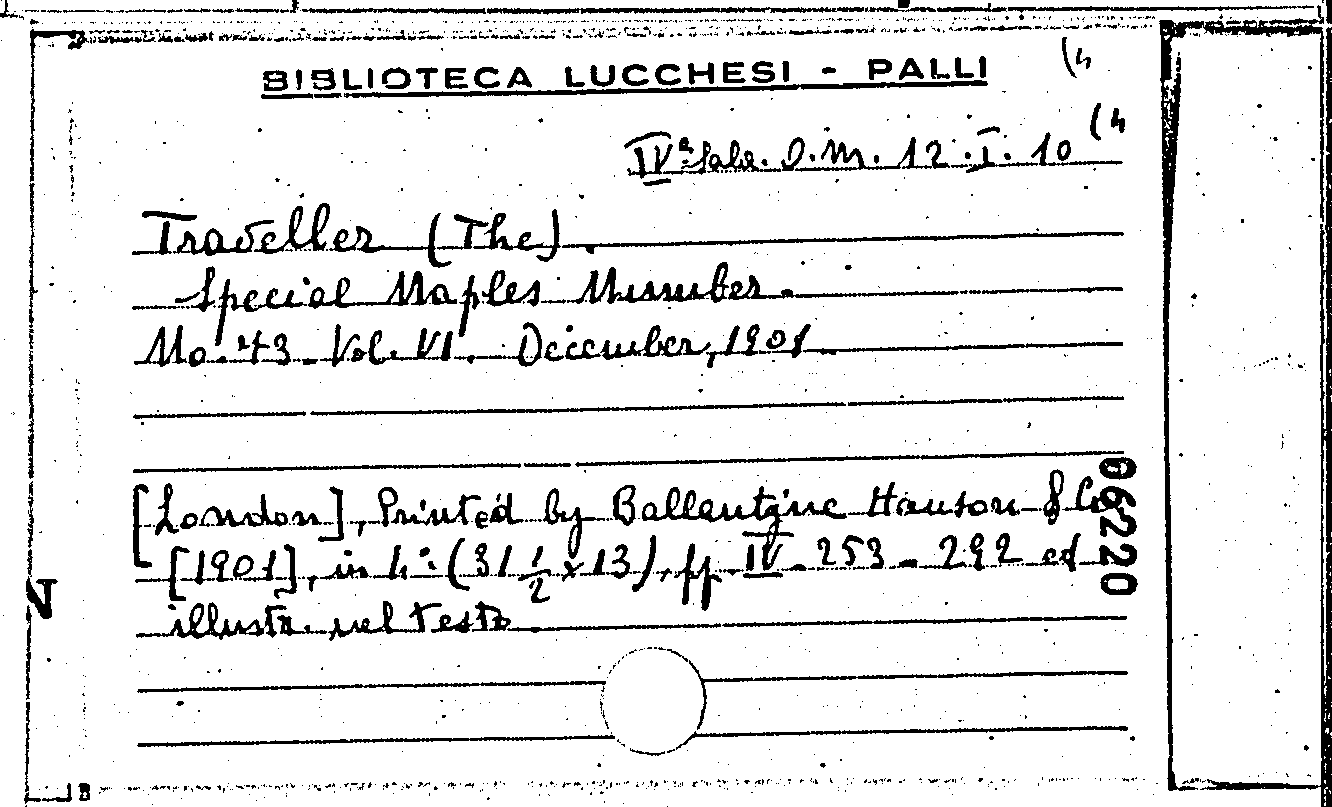 BIBLIOTECA LUCCHESI - PALLI
(4
(4
IVª Sala. O.M. 12.I.10
Traveller (The).
Special Naples Number.
No. 43 - Vol. VI. December, 1901.
[London], Printed by Ballantyne Hanson & Co
[1901], in 4°: (31 1/2 x 13), pp. IV - 253 - 292 ed
illustr. nel testo.
06220
N